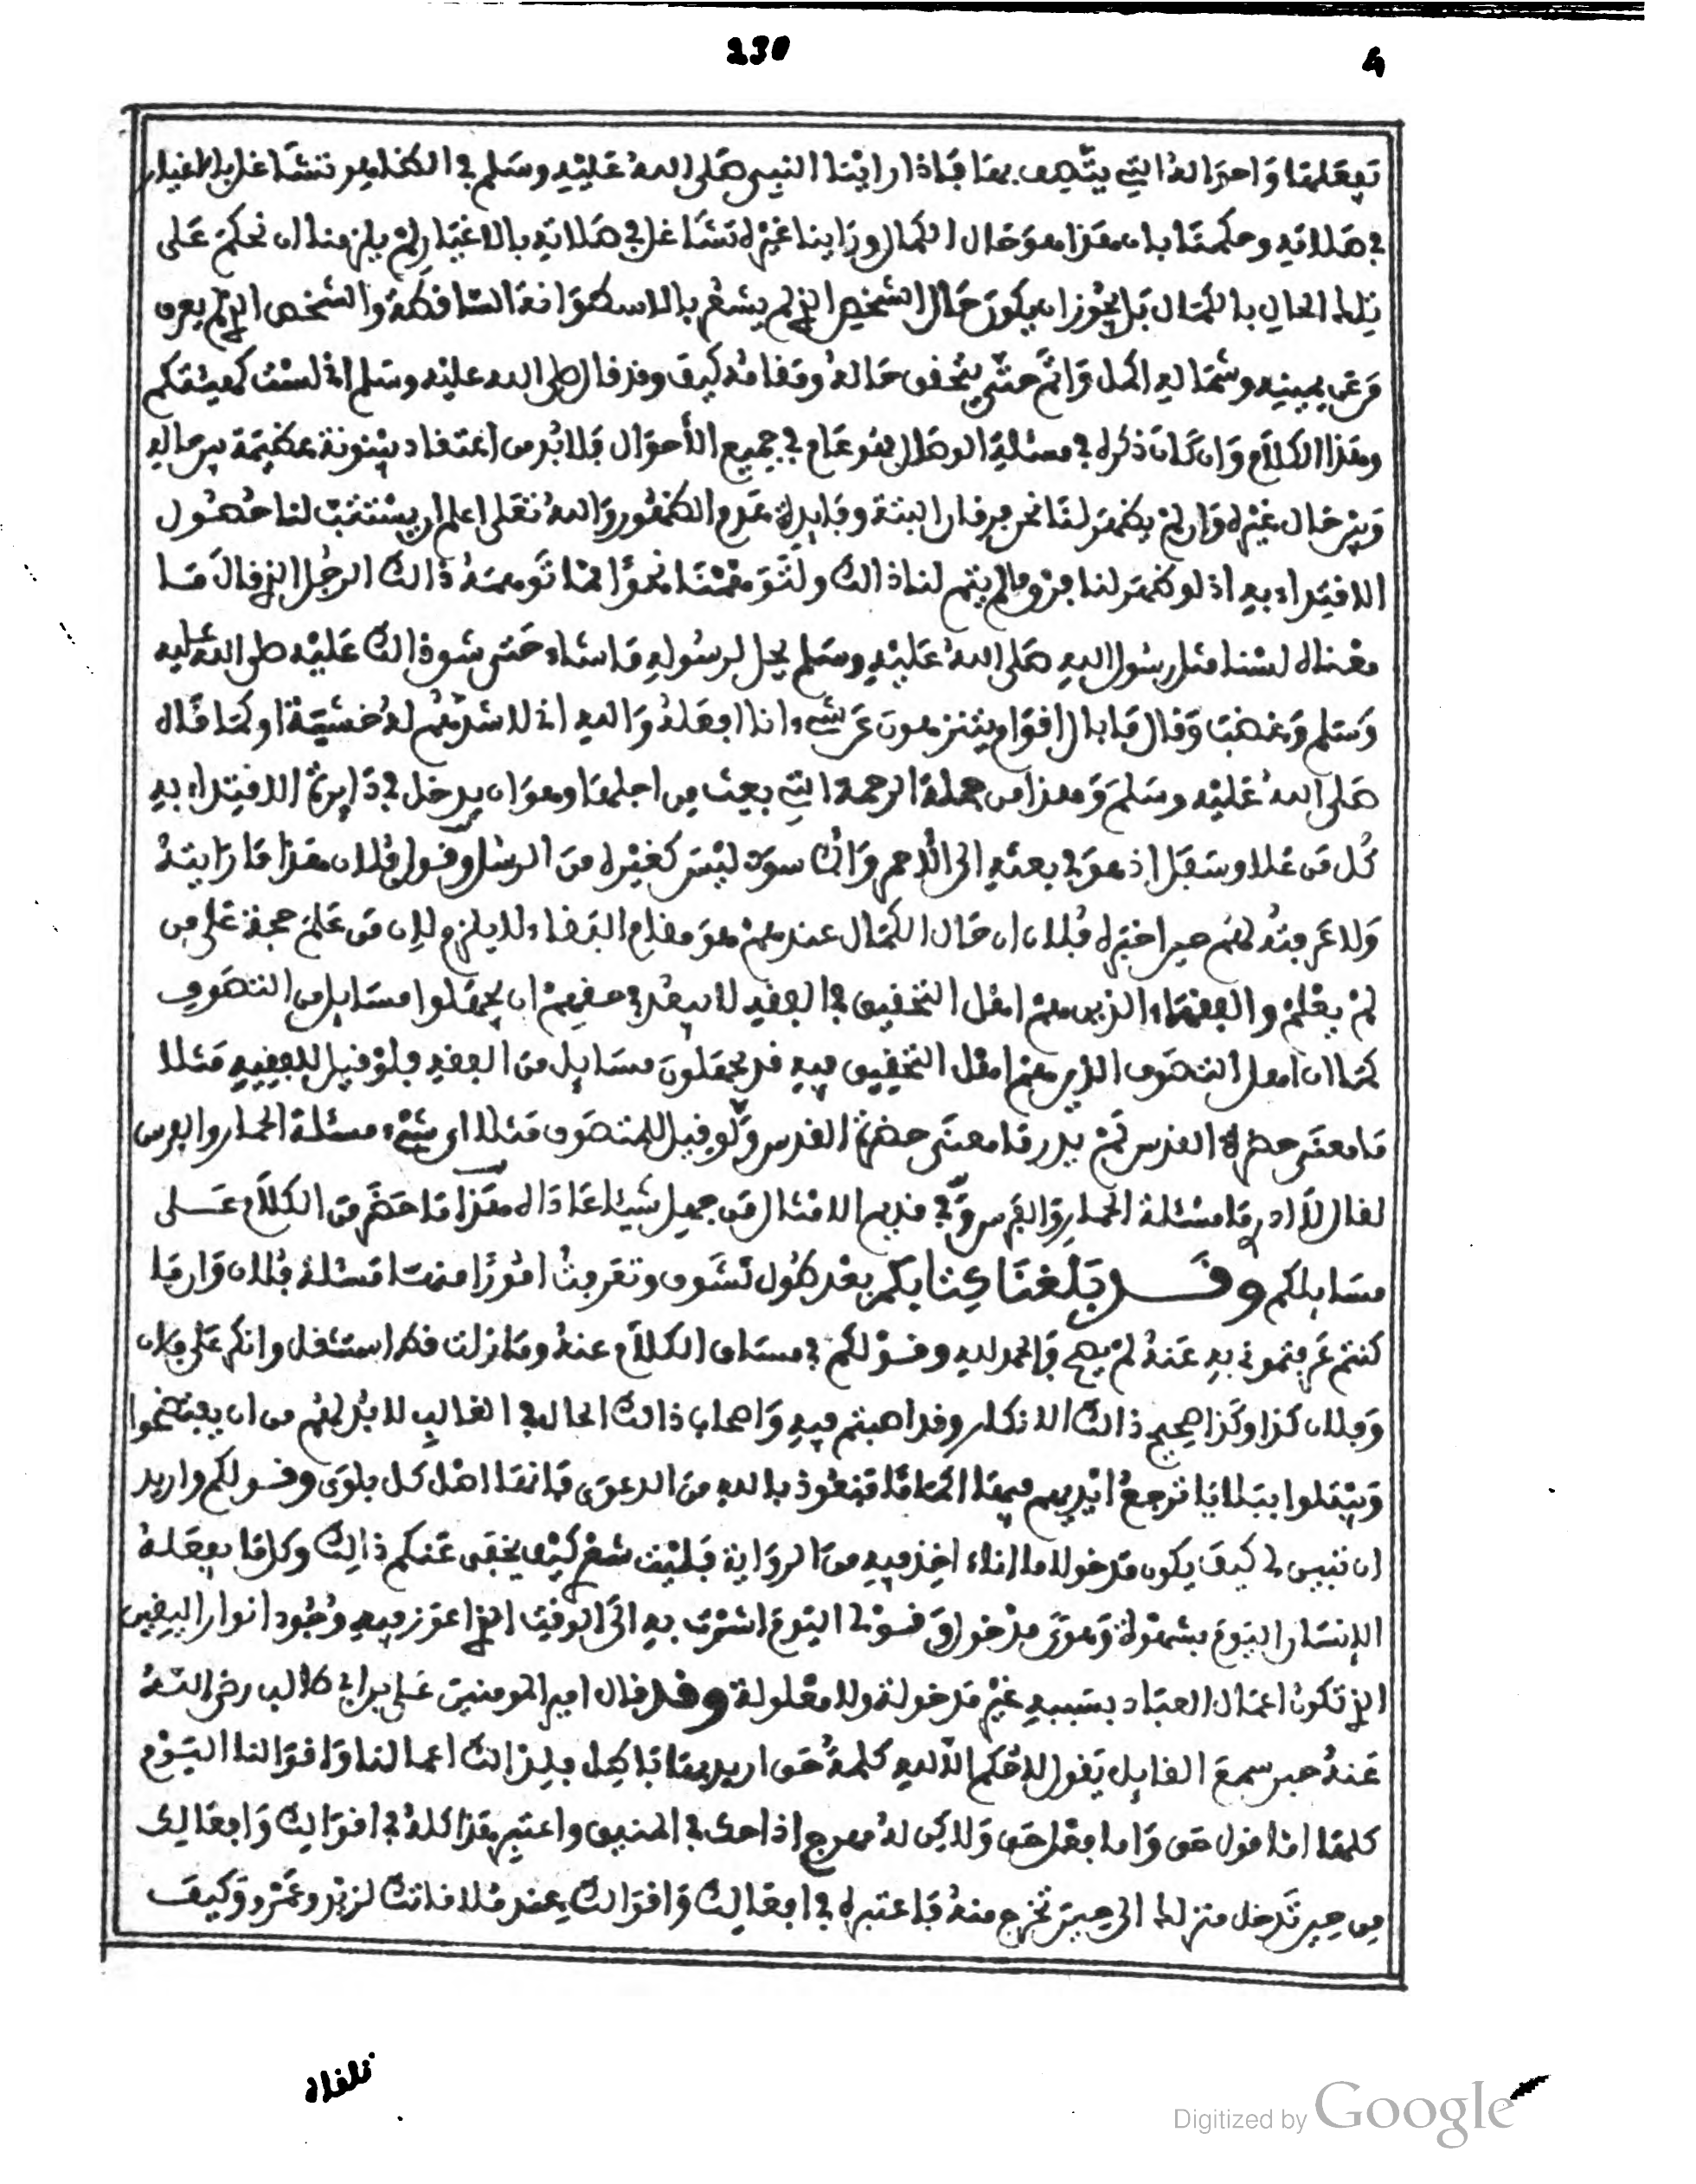 230
4
يفعلها واحواله التي يتصف بها فإذا راينا النبي صلى الله عليه وسلم في الظاهر تشاغل بالاغيار
في صلاته وحكمنا بان هذا هو حال الكمال وراينا غيره تشاغل في صلاته بالاغيار لم يلزمنا ان نحكم على
تلك الحال بالكمال بل يجوز ان يكون حال الشخص الذي لم يشعر بالاسطوانة الساقطة والشخص الذي لم يعرف
من عن يمينه وشماله اكمل واتم حتى يتحقق حاله ومقامه كيف وقد قال صلى الله عليه وسلم اني لست كهيئتكم
وهذا الكلام وان كان ذكره في مسئلة الوصال فهو عام في جميع الأحوال فلا بد من اعتقاد بينونة عظيمة بين حاله
وبين حال غيره وان لم يظهر لنا نحن فرقان البتة وفايدة عدم الظهور والله تعلى اعلم ان يستتب لنا حصول
الاقتداء به اذ لو ظهر لنا فرق ما لم يتم لنا ذالك ولتوهمنا نحوا مما توهمه ذالك الرجل الذي قال ما
معناه لسنا مثل رسول الله صلى الله عليه وسلم يحل لرسوله ما شاء حتى شق ذالك عليه صلى الله عليه
وسلم وغضب وقال ما بال اقوام يتنزهون عن شيء انا افعله والله اني لاشدهم له خشية او كما قال
صلى الله عليه وسلم وهذا من جملة الرحمة التي بعث من اجلها وهو ان يدخل في دايرة الاقتداء به
كل من علا وسفل اذ هو في بعثه الى الاحمر والاسود ليس كغيره من الرسل وقول فلان هذا ما رايته
ولا عرفته لهم حين اخبره فلان ان حال الكمال عندهم هو مقام البقاء لا يلزم لان من علم حجة على من
لم يعلم والفقهاء الذين هم اهل التحقيق في الفقه لا يبعد في حقهم ان يجهلوا مسايل من التصوف
كما ان اهل التصوف الذين هم اهل التحقيق فيه قد يجهلون مسايل من الفقه فلو قيل للفقيه مثلا
ما معنى حضرة القدس لم يدر ما معنى حضرة القدس ولو قيل للمتصوف مثلا اي شيء مسئلة الحمار والفرس
لقال لا ادري ما مسئلة الحمار والفرس وفي قديم الامثال من جهل شيئا عاداه هذا ما حضر من الكلام على
مسايلكم وقد بلغنا كتابكم بعد طول تشوف وتعرفت امورا منها مسئلة فلان وان ما
كنتم عرفتموني به عنه لم يصح والحمد لله وقولكم في مساق الكلام عنه وما زلت قط استثقل وانكر على فلان
وفلان كذا وكذا صحيح ذالك الانكار وقد اصبتم فيه واصحاب ذالك الحال في الغالب لا بد لهم من ان يفتضحوا
ويبتلوا ببلايا ترجع ايديهم فيها الى فنعوذ بالله من الدعوى فانها اصل كل بلوى وقولكم واريد
ان تبين لي كيف يكون مدخولا ما انا اخذ فيه من الرواية فليت شعري كيف يخفى عنكم ذالك وكل ما يفعله
الانسان اليوم بشهوة وهوى مدخول وقولي اليوم اشرت به الى الوقت الذي اعوز فيه وجود انوار اليقين
الذي تكون اعمال العباد بسببه غير مدخولة ولا معلولة وقد قال امير المومنين علي بن ابي طالب رضي الله
عنه حين سمع القايل يقول لا حكم الا لله كلمة حق اريد بها باطل فلذالك اعمالنا واقوالنا اليوم
كلها اما قول حق واما فعل حق ولاكن له مبهرج اذا حك في واعتبر هذا كله في اقوالك وافعالك
من حين تدخل منزلك الى حين تخرج منه فاعتبره في افعالك واقوالك عند ملاقاتك لزيد وعمرو وكيف
تلقاه
Digitized by Google